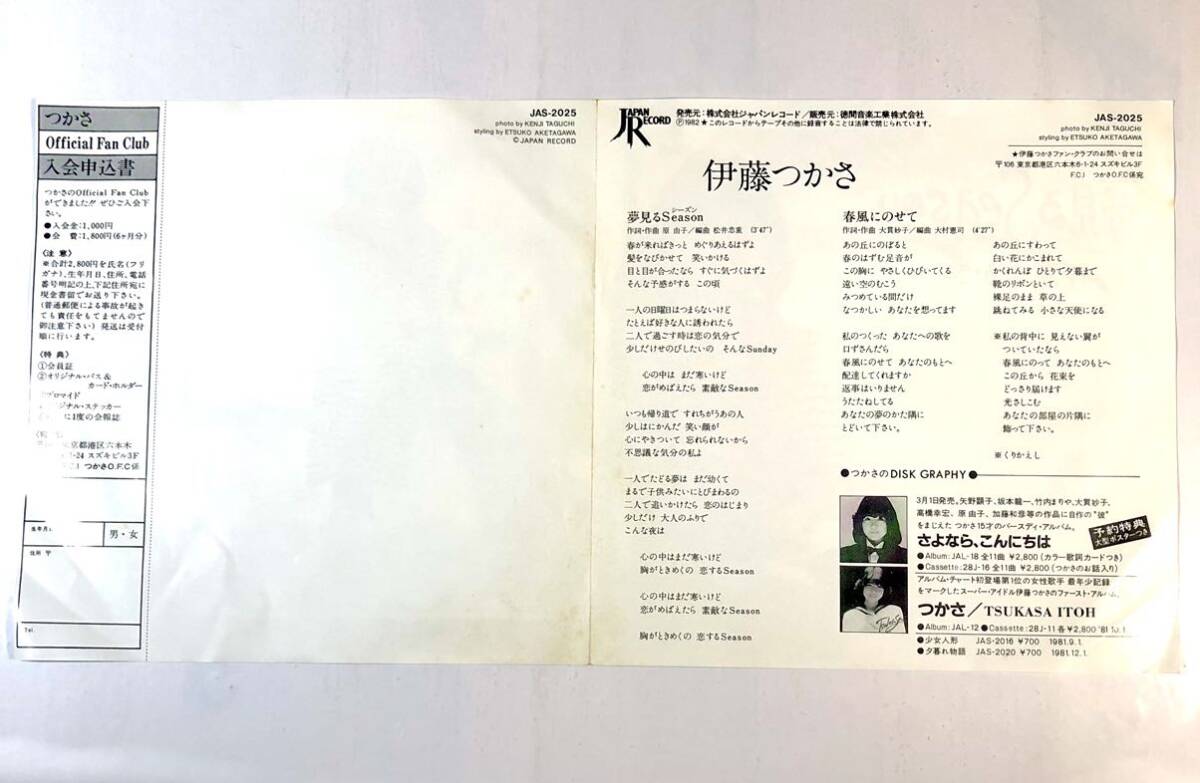 つかさ
Official Fan Club
入会申込書
つかさのOfficial Fan Club
ができました!! ぜひご入会下
さい。
●入会金:1,000円
●会 費:1,800円(6ヶ月分)
〈注 意〉
※合計2,800円を氏名(フリ
ガナ)、生年月日、住所、電話
番号明記の上、下記住所宛に
現金書留でお送り下さい。
(普通郵便による事故が起き
ても責任をもてませんので
御注意下さい) 発送は受付
順に行います。
〈特 典〉
①会員証
②オリジナル・パス&
カード・ホルダー
ロマイド
ジナル・ステッカー
に1度の会報誌
京都港区六本木
1-24 スズキビル3F
つかさO.F.C係
生年月
男・女
住所 〒
Tel.
JAS-2025
photo by KENJI TAGUCHI
styling by ETSUKO AKETAGAWA
© JAPAN RECORD
JAPAN RECORD
発売元:株式会社ジャパンレコード/販売元:徳間音楽工業株式会社
Ⓟ1982★このレコードからテープその他に録音することは法律で禁じられています。
JAS-2025
photo by KENJI TAGUCHI
styling by ETSUKO AKETAGAWA
★伊藤つかさファン・クラブのお問い合せは
〒106 東京都港区六本木6-1-24 スズキビル3F
F.C.I つかさO.F.C係宛
伊藤つかさ
シーズン
夢見るSeason
作詞・作曲 原 由子/編曲 松井忠重 (3'47")
春が来ればきっと めぐりあえるはずよ
髪をなびかせて 笑いかける
目と目が合ったなら すぐに気づくはずよ
そんな予感がする この頃
一人の日曜日はつまらないけど
たとえば好きな人に誘われたら
二人で過ごす時は恋の気分で
少しだけせのびしたいの そんなSunday
心の中は まだ寒いけど
恋がめばえたら 素敵なSeason
いつも帰り道で すれちがうあの人
少しはにかんだ 笑い顔が
心にやきついて 忘れられないから
不思議な気分の私よ
一人でたどる夢は まだ幼くて
まるで子供みたいにとびまわるの
二人で追いかけたら 恋のはじまり
少しだけ 大人のふりで
こんな夜は
心の中はまだ寒いけど
胸がときめくの 恋するSeason
心の中はまだ寒いけど
恋がめばえたら 素敵なSeason
胸がときめくの 恋するSeason
春風にのせて
作詞・作曲 大貫妙子/編曲 大村憲司 (4'27")
あの丘にのぼると
春のはずむ足音が
この胸に やさしくひびいてくる
遠い空のむこう
みつめている間だけ
なつかしい あなたを想ってます
私のつくった あなたへの歌を
口ずさんだら
春風にのせて あなたのもとへ
配達してくれますか
返事はいりません
うたたねしてる
あなたの夢のかた隅に
とどいて下さい。
あの丘にすわって
白い花にかこまれて
かくれんぼ ひとりで夕暮まで
靴のリボンといて
裸足のまま 草の上
跳ねてみる 小さな天使になる
※私の背中に 見えない翼が
ついていたなら
春風にのって あなたのもとへ
この丘から 花束を
どっさり届けます
光さしこむ
あなたの部屋の片隅に
飾って下さい。
※くりかえし
●つかさのDISK GRAPHY●
3月1日発売。矢野顕子、坂本龍一、竹内まりや、大貫妙子、
高橋幸宏、原 由子、加藤和彦等の作品に自作の“彼”
をまじえた つかさ15才のバースディ・アルバム。
さよなら、こんにちは
予約特典
大型ポスターつき
●Album:JAL-18 全11曲 ¥2,800(カラー歌詞カードつき)
●Cassette:28J-16 全11曲 ¥2,800(つかさのお話入り)
アルバム・チャート初登場第1位の女性歌手 最年少記録
をマークしたスーパー・アイドル伊藤つかさのファースト・アルバム。
つかさ/TSUKASA ITOH
●Album:JAL-12 ●Cassette:28J-11 各¥2,800 '81.10.1.
●少女人形 JAS-2016 ¥700 1981.9.1.
●夕暮れ物語 JAS-2020 ¥700 1981.12.1.